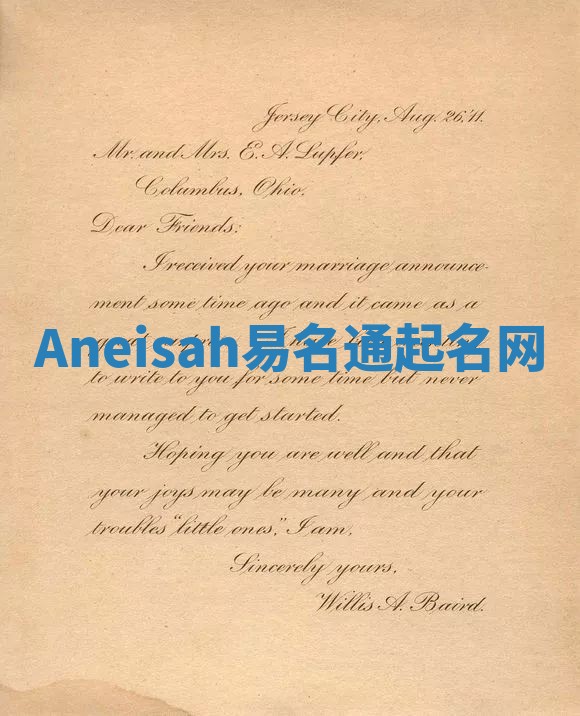 Jersey City, Aug. 26,'11.
Mr. and Mrs. E. A. Lupfer,
Columbus, Ohio.
Dear Friends:
I received your marriage announce-
ment some time ago and it came as a
Aneisah易名通起名网
to write to you for some time but never
managed to get started.
Hoping you are well and that
your joys may be many and your
troubles "little ones," I am,
Sincerely yours,
Willis A. Baird.